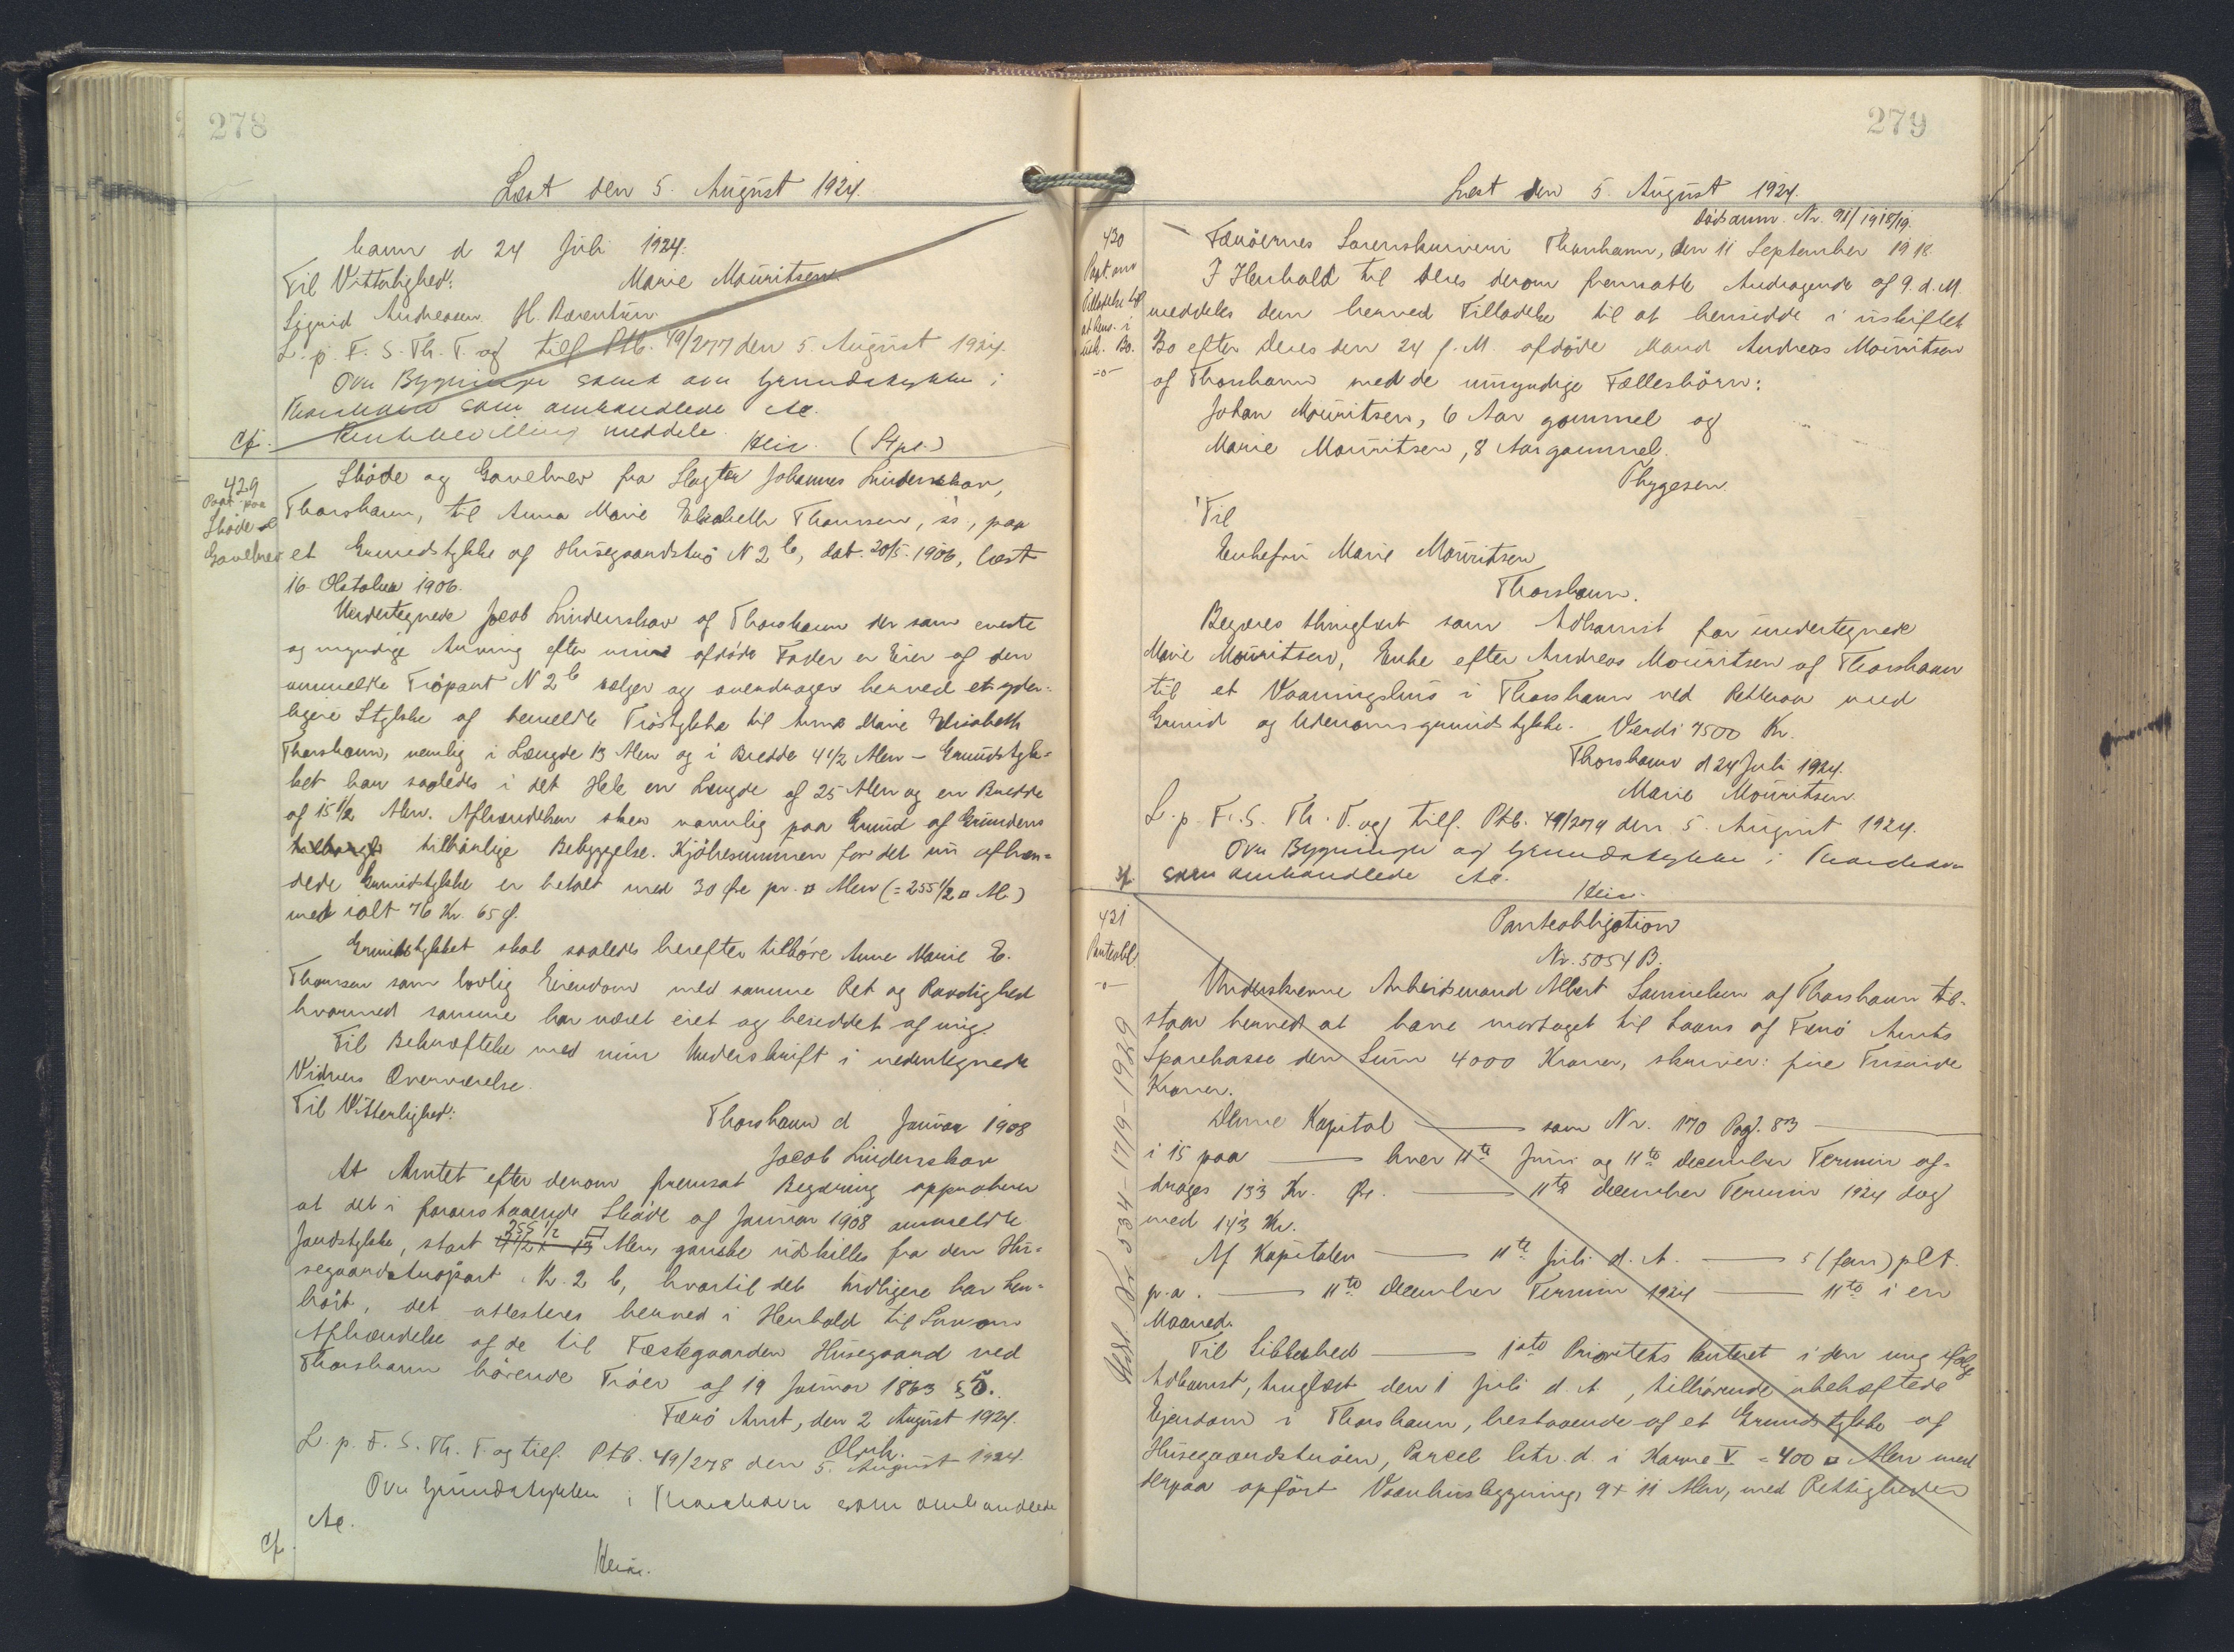 278
Læst den 5. August 1924.
havn d 24 Juli 1924.
Til Vitterlighed: Marie Mouritsen
Sigrid Andreasen. H. Bærentsen.
L. p. F. S. Th. T. og tilf. Ptb. 49/277 den 5 August 1924.
Over Bygninger samt over Grundstykke i
Thorshavn som omhandlede Ac.
cf. meddele. Heir. (Stpl.)
429
Paat. paa
Skøde og
Gavebrev
Skøde og Gavebrev fra Slagter Johannes Lindenskov,
Thorshavn, til Anna Marie Elisabeth Thomsen, is., paa
et Grundstykke af Husegaardstrø N 2 b, dat. 20/5. 1906, læst
16. Oktober 1906.
Undertegnede Jacob Lindenskov af Thorshavn der som eneste
og myndige Arving efter min afdøde Fader er Eier af den
anmeldte Trøpart N 2 b sælger og overdrager herved et yder-
ligere Stykke af bemeldte Trøstykke til Anna Marie Elisabeth
Thorshavn, nemlig i Længde 13 Alen og i Bredde 4 1/2 Alen - Grundstyk-
ket har saaledes i det Hele en Længde af 25 Alen og en Bredde
af 15 1/2 Alen. Afhændelsen sker navnlig paa Grund af Grundens
tilhørlige Bebyggelse. Kjøbesummen for det nu afhæn-
dede Grundstykke er betalt med 30 Øre pr. □ Alen (= 255 1/2 □ Al.)
med ialt 76 Kr. 65 Ø.
Grundstykket skal saaledes herefter tilhøre Anna Marie E.
Thomsen som lovlig Eiendom med samme Ret og Raadighed
hvormed samme har været eiet og besiddet af mig.
Til Bekræftelse med min Underskrift i nedentegnede
Vidners Overværelse.
Til Vitterlighed: Thorshavn d Januar 1908
Jacob Lindenskov
At Amtet efter derom fremsat Begæring approberer
at det i foranstaaende Skøde af Januar 1908 anmeldte
Jordstykke, stort 255 1/2 □ Alen, ganske udskilles fra den Hu-
segaardstrøpart Nr. 2 b, hvortil det tidligere har hen-
hørt, det attesteres herved i Henhold til Lov om
Afhændelse af de til Fæstegaarden Husegaard ved
Thorshavn hørende Trøer af 19 Januar 1863 § 5.
Færø Amt, den 2 August 1924.
L. p. F. S. Th. T. og tilf. Ptb. 49/278 den 5. August 1924.
Over Grundstykke i Thorshavn som omhandlede
Ac.
cf. Heir.
279
Læst den 5. August 1924.
Dødsanm. Nr. 91/1918/19.
430
Paat. om
Tilladelse til
at hens. i
usk. Bo.
-o-
Færøernes Sorenskriveri Thorshavn, den 11 September 1918.
I Henhold til Deres derom fremsatte Andragende af 9. d. M.
meddeles dem herved Tilladelse til at hensidde i uskiftet
Bo efter Deres den 24 f. M. afdøde Mand Andreas Mouritsen
af Thorshavn med de umyndige Fællesbørn:
Johan Mouritsen, 6 Aar gammel og
Marie Mouritsen, 8 Aar gammel.
Thygesen
Til
Enkefru Marie Mouritsen
Thorshavn.
Begæres thinglæst som Adkomst for undertegnede
Marie Mouritsen, Enke efter Andreas Mouritsen af Thorshavn
til et Vaaningshus i Thorshavn ved med
Grund og Udenomsgrundstykke. Værdi 7500 Kr.
Thorshavn d 24 Juli 1924.
Marie Mouritsen.
L. p. F. S. Th. T. og tilf. Ptb. 49/279 den 5. August 1924.
Over Bygninger og Grundstykke i Thorshavn
cf. som omhandlede Ac.
Heir.
431
Panteobl.
-o-
Panteobligation
Nr. 5054 B.
Underskrevne Arbeidsmand Albert Samuelsen af Thorshavn til-
staar herved at have modtaget til Laans af Færø Amts
Sparekasse den Sum 4000 Kroner, skriver: fire Tusinde
Kroner.
Denne Kapital — som Nr. 170 Pag. 83 —
i 15 paa — hver 11te Juni og 11te December Termin af-
drages 133 Kr. Øre. — 11te December Termin 1924 dog
med 143 Kr.
Af Kapitalen — 11te Juli d. A. — 5 (fem) pCt.
p.a. — 11te December Termin 1924 — 11te i en
Maaned.
Til Sikkerhed — 1ste Prioritets Panteret i den mig ifølge
Adkomst, tinglæst den 1 Juli d. A., tilhørende ubehæftede
Ejendom i Thorshavn, bestaaende af et Grundstykke af
Husegaardstrøen, Parcel litr. d. i Karme V = 400 □ Alen med
derpaa opført Vaanhusbygning, 9 x 11 Alen, med Rettigheder
Nr. 534-1719-1929